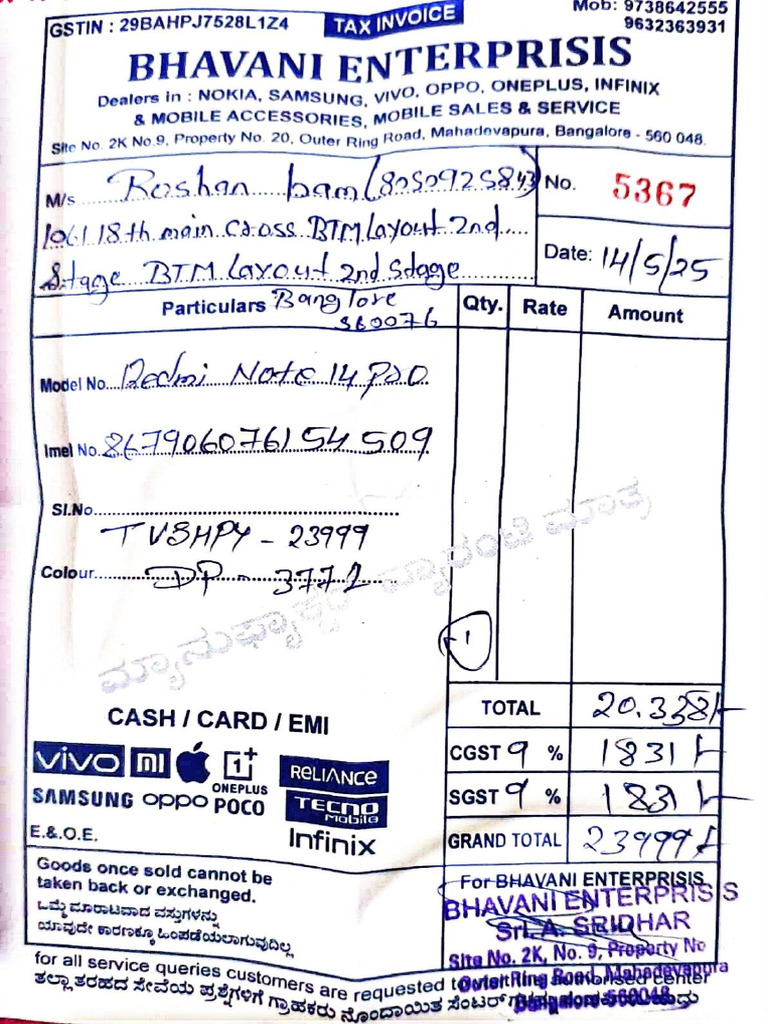 GSTIN : 29BAHPJ7528L1Z4
TAX INVOICE
Mob: 9738642555
9632363931
BHAVANI ENTERPRISIS
Dealers in : NOKIA, SAMSUNG, VIVO, OPPO, ONEPLUS, INFINIX
& MOBILE ACCESSORIES, MOBILE SALES & SERVICE
Site No. 2K No.9, Property No. 20, Outer Ring Road, Mahadevapura, Bangalore - 560 048.
M/s Roshan bam (8050925843)
No. 5367
1061 18th main cross BTM Layout 2nd
Stage BTM Layout 2nd Stage
Date: 14/5/25
Particulars Banglore
560076
Qty. Rate Amount
Model No. Redmi Note 14 Pro
Imei No. 867906076154509
Sl.No
TVSHPY - 23999
Colour DP - 3772
ಮ್ಯಾನುಫ್ಯಾಕ್ಚರ ವ್ಯಾರಂಟಿ ಮಾತ್ರ
1
CASH / CARD / EMI
TOTAL 20.338/-
CGST 9 % 1831/-
SGST 9 % 1831/-
GRAND TOTAL 23999/-
vivo mi 1+ ONEPLUS RELIANCE
SAMSUNG oppo POCO TECNO mobile
Infinix
E.& O.E.
Goods once sold cannot be
taken back or exchanged.
ಒಮ್ಮೆ ಮಾರಾಟವಾದ ವಸ್ತುಗಳನ್ನು
ಯಾವುದೇ ಕಾರಣಕ್ಕೂ ಹಿಂಪಡೆಯಲಾಗುವುದಿಲ್ಲ
For BHAVANI ENTERPRISIS
BHAVANI ENTERPRISIS
Sri. A. SRIDHAR
Site No. 2K, No. 9, Property No
Outer Ring Road, Mahadevapura
Bangalore-560048
for all service queries customers are requested to visit authorised center
ತಲ್ಲಾ ತರಹದ ಸೇವೆಯ ಪ್ರಶ್ನೆಗಳಿಗೆ ಗ್ರಾಹಕರು ನೊಂದಾಯಿತ ಸೆಂಟರ್